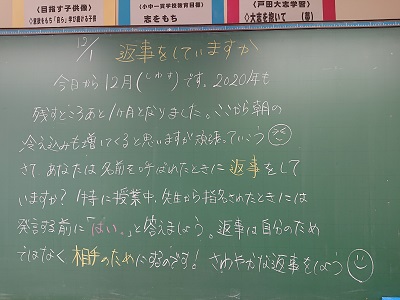 ＜目指す子供像＞
＜小中一貫学校教育目標＞
志をもち
＜戸田大志学習＞
大志を抱いて
12/1 返事をしていますか
今日から12月(しわす)です。2020年も
残すところあと1ヶ月となりました。ここから朝の
冷え込みも増してくると思いますが頑張っていこう
さて あなたは名前を呼ばれたときに返事をして
いますか？特に授業中、先生から指名されたときには
発言する前に「はい。」と答えましょう。返事は自分のため
ではなく相手のためにするのです！さわやかな返事をしよう